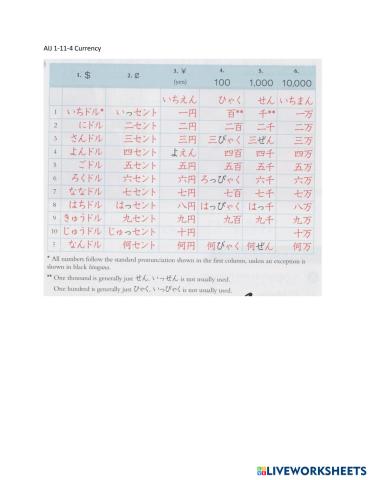 AIJ 1-11-4 Currency
1. $ 2. ¢ 3. ¥ (yen) 4. 100 5. 1,000 6. 10,000
いちえん ひゃく せん いちまん
1 いちドル* いっセント 一円 百** 千** 一万
2 にドル 二セント 二円 二百 二千 二万
3 さんドル 三セント 三円 三びゃく 三ぜん 三万
4 よんドル 四セント よえん 四百 四千 四万
5 ごドル 五セント 五円 五百 五千 五万
6 ろくドル 六セント 六円 ろっぴゃく 六千 六万
7 ななドル 七セント 七円 七百 七千 七万
8 はちドル はっセント 八円 はっぴゃく はっ千 八万
9 きゅうドル 九セント 九円 九百 九千 九万
10 じゅうドル じゅっセント 十円 十万
? なんドル 何セント 何円 何びゃく 何ぜん 何万
* All numbers follow the standard pronunciation shown in the first column, unless an exception is
shown in black hiragana.
** One thousand is generally just せん. いっせん is not usually used.
One hundred is generally just ひゃく. いっぴゃく is not usually used.
LIVEWORKSHEETS